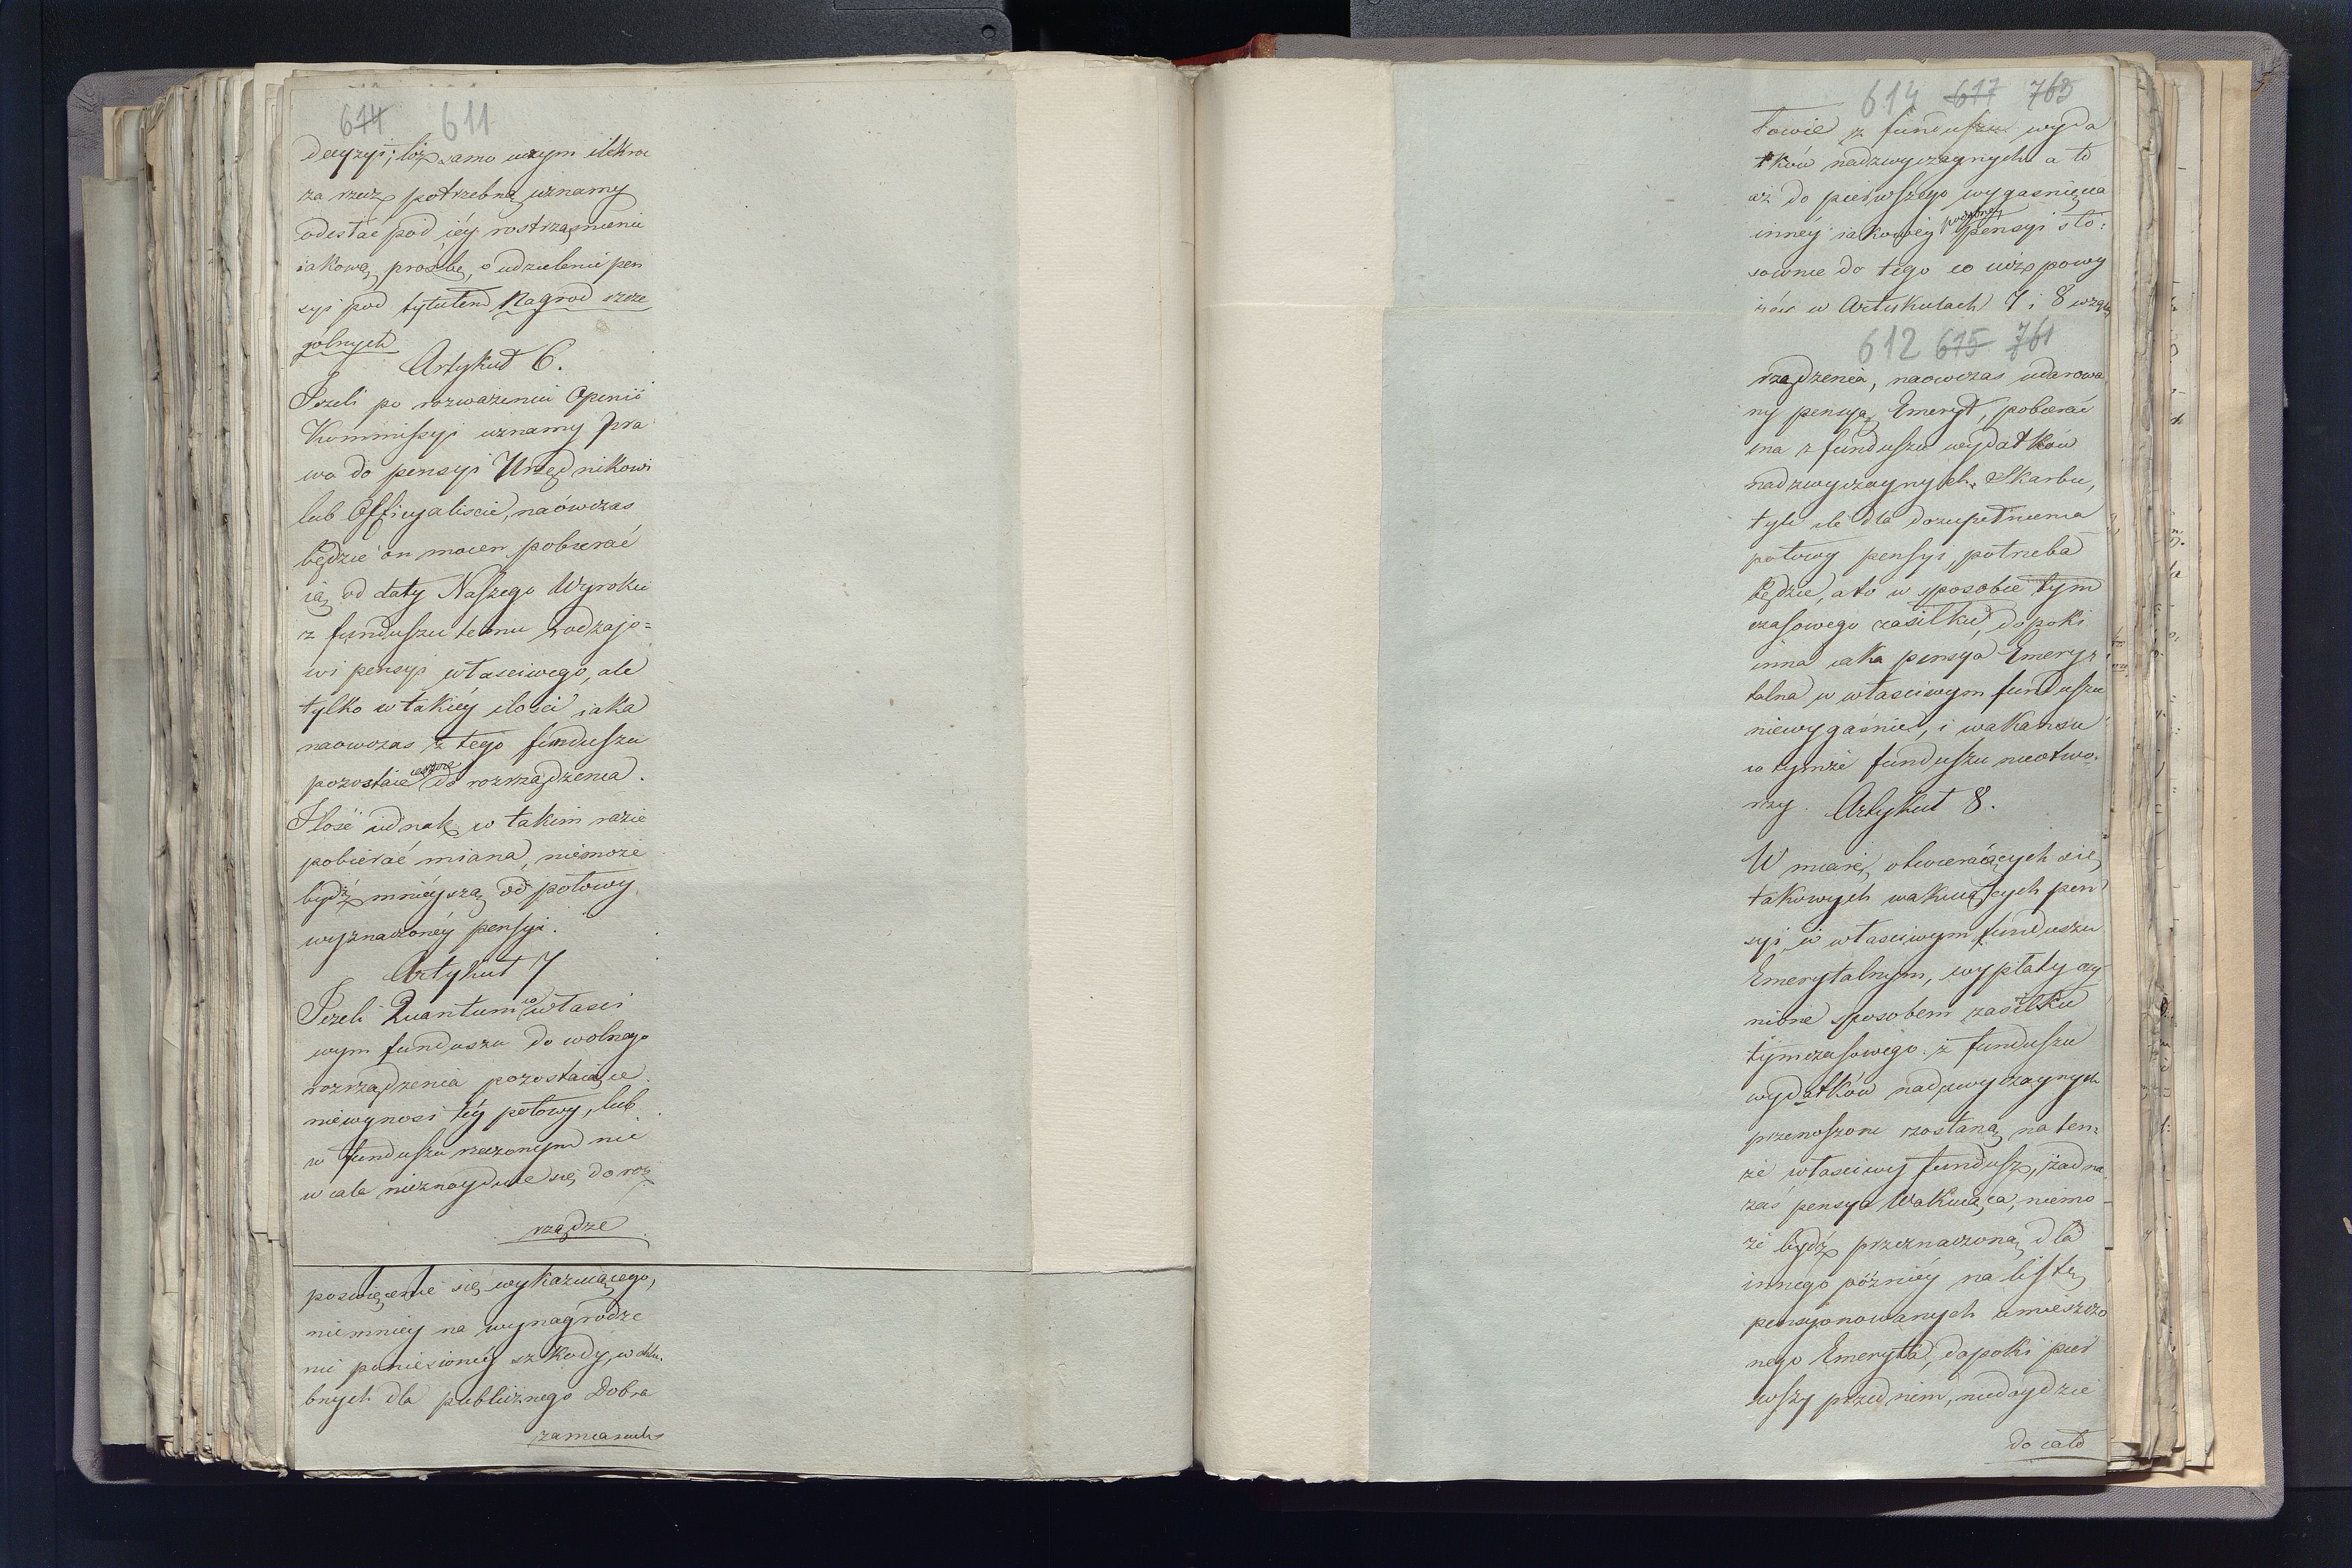 614 611
decyzyi; toż samo uczym ilekroć
za rzecz potrzebną uznamy
odesłać pod iéy rostrząśnienie
iakową prośbę, o udzielenie pen
syi pod tytułem Nagrod szcze
gólnych
Artykuł 6.
Jeżeli po rozważeniu Opinii
Kommissyi uznamy pra
wo do pensyi Urzędnikowi
lub Officyaliscie, naówczas
będzie on mocen pobierać
ią od daty Naszego Wyroku
z funduszu temu rodzajo=
wi pensyi właściwego, ale
tylko w takiéy ilości iaka
naowczas z tego funduszu
pozostaie ieszcze do rozrządzenia.
Ilość iednak w takim razie
pobierać miana, niemoże
bydź mniéyszą od połowy
wyznaczonéy pensyi.
Artykuł 7
Jeżeli Quantum w właści
wym funduszu do wolnego
rozrządzenia pozostaiące
niewynosi téy połowy, lub
w funduszu rzeczonym nic
wcale nieznayduie się do roz
rządze
poswięcenie się wykazuiącego,
niemniey na wynagrodze
nie poniesionéy szkody, w chlu,
bnych dla publicznego Dobra
zamiarach
614 617 763
towie z funduszu wyda
tków nadzwyczaynych a to
aż do pierwszego wygasnięcia
innéy iakowéy podobnéy pensyi sto:
sownie do tego co iuż powy
żéy w Artykułach 7 i 8 wzglę
612 615 761
rządzenia, naowczas udarowa
ny pensyą Emeryt, pobierać
ma z funduszu wydatków
nadzwyczaynych Skarbu,
tyle ile dla dozupełnienia
połowy pensyi potrzeba
będzie, a to w sposobie tym
czasowego zasiłku, dopoki
inna iaka pensya Emery=
talna w właściwym funduszu
niewygaśnie, i wakansu
w tymże funduszu nieotwo.
rzy.
Artykuł 8.
W miarę otwieraiących się
takowych wakuiących pen
syi w właściwym funduszu
Emerytalnym, wypłaty czy
nione sposobem zasiłku
tymczasowego z funduszu
wydatków nadzwyczaynych
przenoszone zostaną na ten=
że właściwy fundusz, żadna
zaś pensya wakuiąca, niemo
że bydź przeznaczoną dla
innego późniéy na listę
pensyonowanych umieszczo
nego Emeryta, dopoki pier
wszy przed nim, niedoydzie
do cało